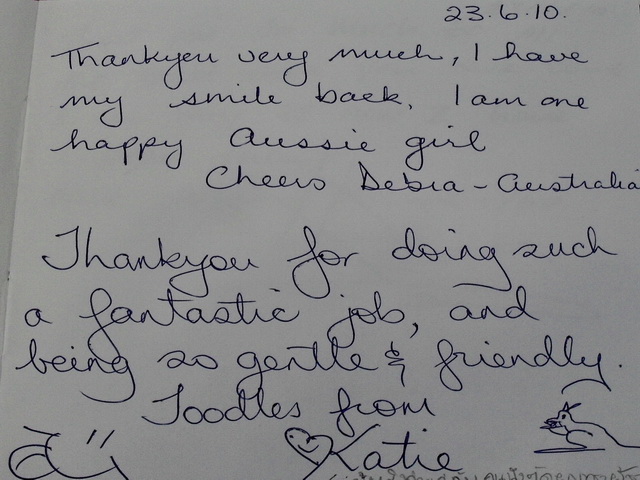 23.6.10.
Thankyou very much, I have
my smile back. I am one
happy Aussie girl
Cheers Debra - Australia
Thankyou for doing such
a fantastic job, and
being so gentle & friendly.
Toodles from
Katie